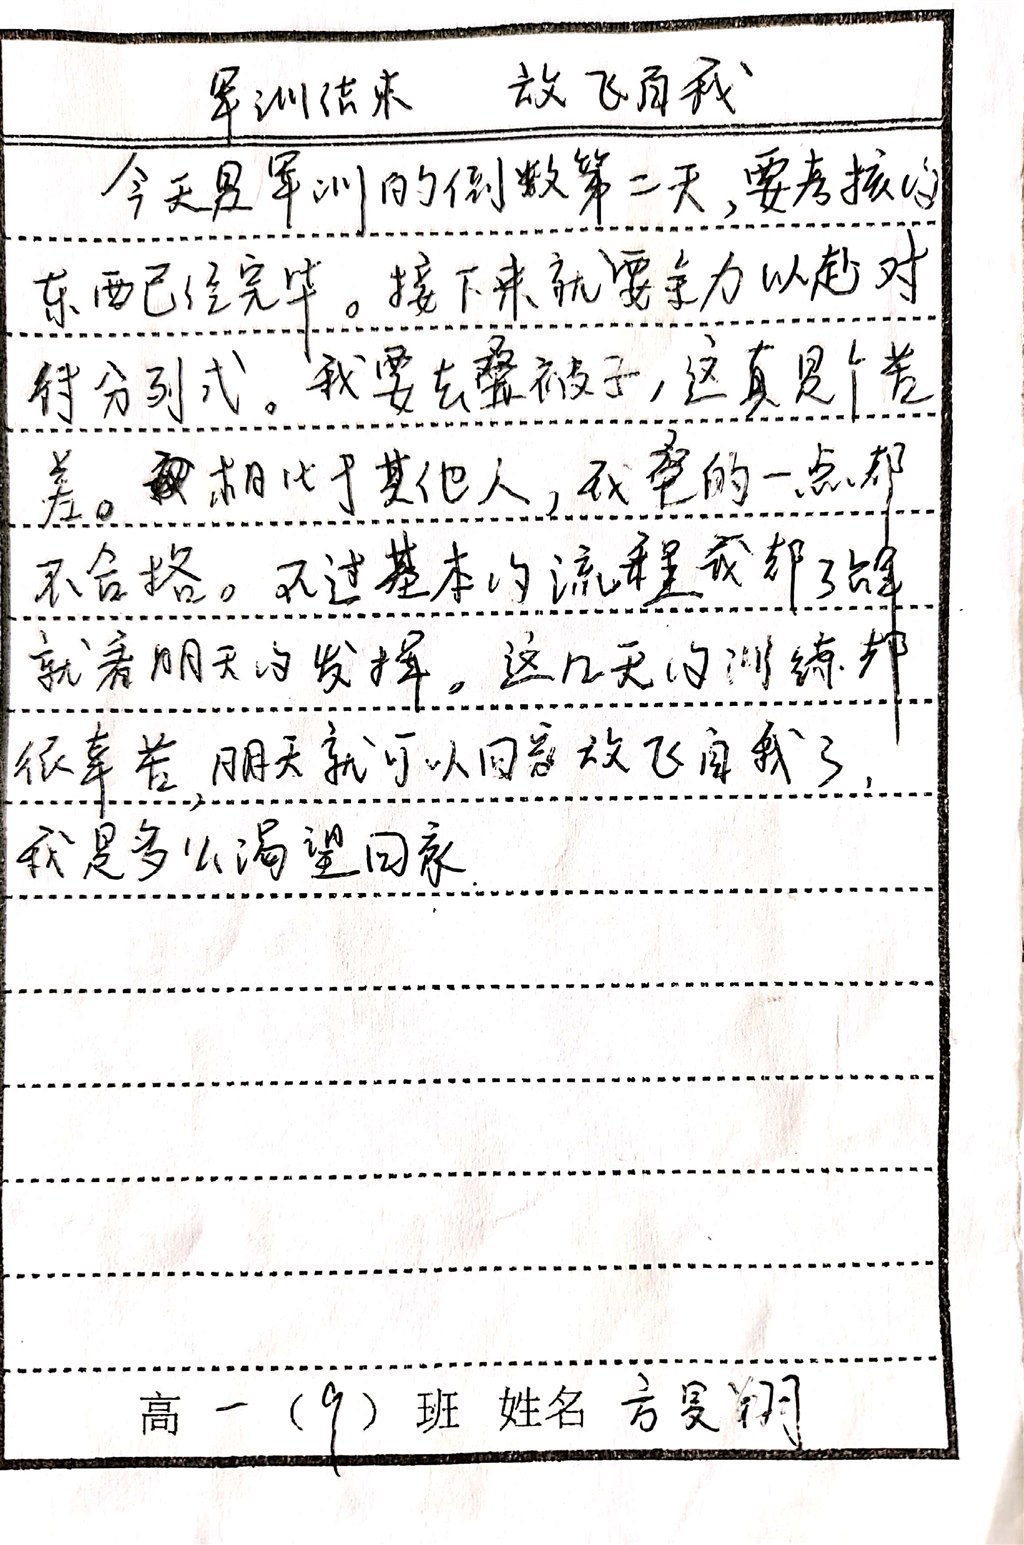 军训结束 放飞自我
今天是军训的倒数第二天,要考核的
东西已经完毕。接下来就要全力以赴对
待分列式。我要去叠被子,这真是个苦
差。相比于其他人,我叠的一点都
不合格。不过基本的流程我都了解
就看明天的发挥。这几天的训练都
很辛苦,明天就可以回家放飞自我了,
我是多么渴望回家.
高一(9)班 姓名 方旻翔